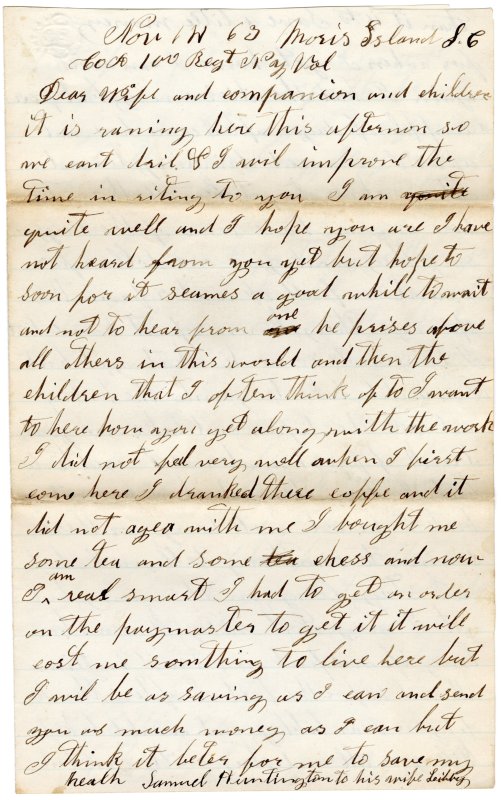 Nov 1st 63 Moris Island S. C
Co A 100 Regt N Y Vol
Dear Wife and companion and children
it is raning here this afternon so
we cant dril & I wil improve the
time in riting to you I am quite
quite well and I hope you are I have
not heard from you yet but hope to
soon for it seames a good while to wait
and not to hear from one he prises above
all others in this world and then the
children that I often think of to I want
to here how you get along with the work
I did not feel very well when I first
come here I dranked there coffe and it
did not agea with me I bought me
some tea and some tea chess and now
I am real smart I had to get an order
on the paymaster to get it it will
cost me somthing to live here but
I wil be as saving as I can and send
you as much money as I can but
I think it beter for me to save my
health Samuel Huntington to his wife